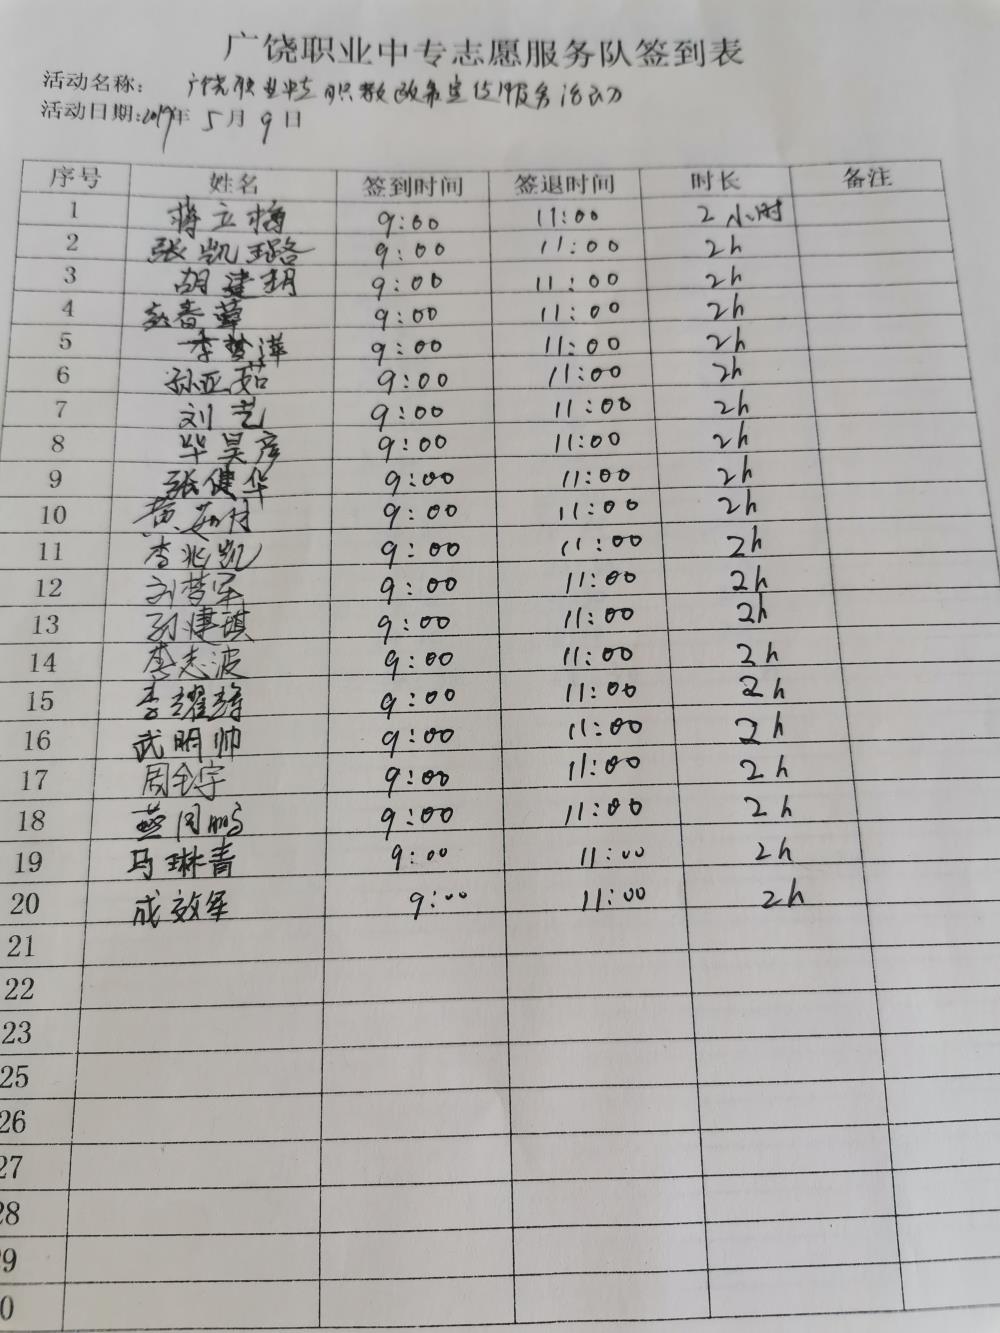 广饶职业中专志愿服务队签到表
活动名称: 广饶职业中专职教政策宣传服务活动
活动日期:2019年 5月 9日
序号 姓名 签到时间 签退时间 时长 备注
1 蒋立梅 9:00 11:00 2小时
2 张凯璐 9:00 11:00 2h
3 胡建玥 9:00 11:00 2h
4 9:00 11:00 2h
5 李梦萍 9:00 11:00 2h
6 孙亚茹 9:00 11:00 2h
7 刘艺 9:00 11:00 2h
8 毕昊彦 9:00 11:00 2h
9 张健华 9:00 11:00 2h
10 9:00 11:00 2h
11 李兆凯 9:00 11:00 2h
12 刘梦军 9:00 11:00 2h
13 9:00 11:00 2h
14 李志波 9:00 11:00 2h
15 李耀 9:00 11:00 2h
16 武明帅 9:00 11:00 2h
17 周全宇 9:00 11:00 2h
18 燕同鹏 9:00 11:00 2h
19 马琳青 9:00 11:00 2h
20 成效军 9:00 11:00 2h
21
22
23
25
26
27
28
29
0